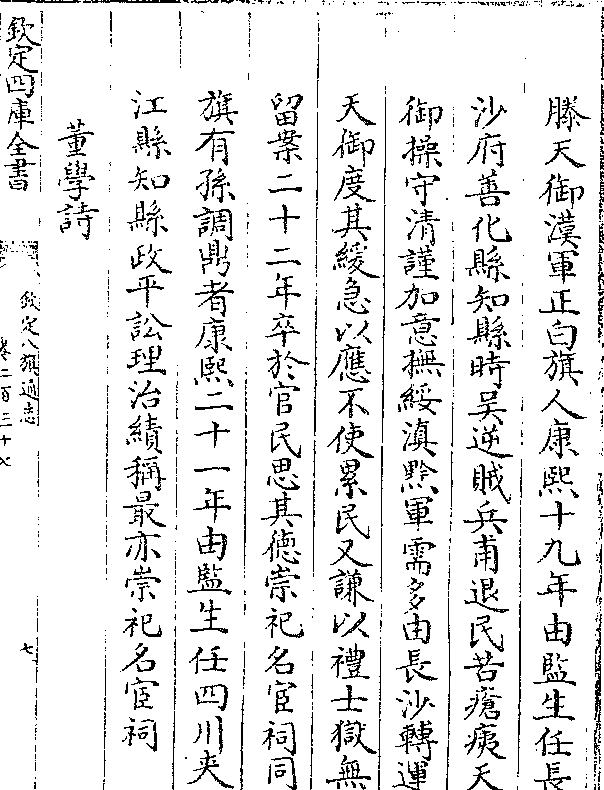 滕天御漢軍正白旗人康熙十九年由監生任長
沙府善化縣知縣時吳逆賊兵甫退民苦瘡痍天
御操守清謹加意撫綏滇黔軍需多由長沙轉運
天御度其緩急以應不使累民又謙以禮士獄無
留案二十二年卒於官民思其德崇祀名宦祠同
旗有孫調鼎者康熙二十一年由監生任四川夾
江縣知縣政平訟理治績稱最亦崇祀名宦祠
董學詩
欽定四庫全書
欽定八旗通志
卷二百三十七
七